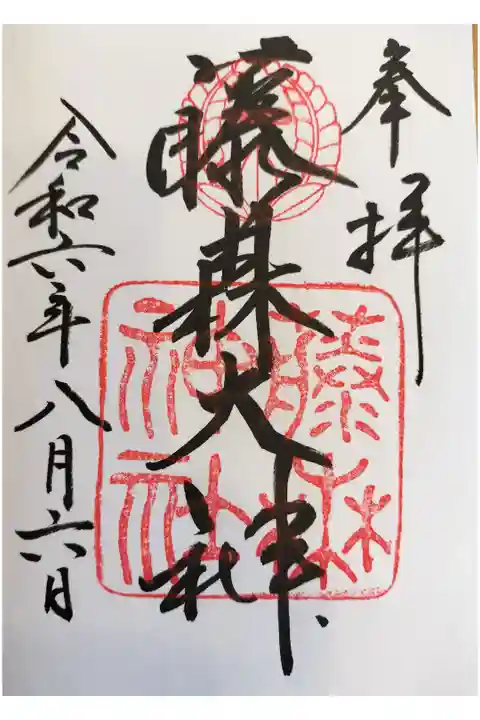 奉拝
藤林大神
令和六年八月六日
藤林
神社